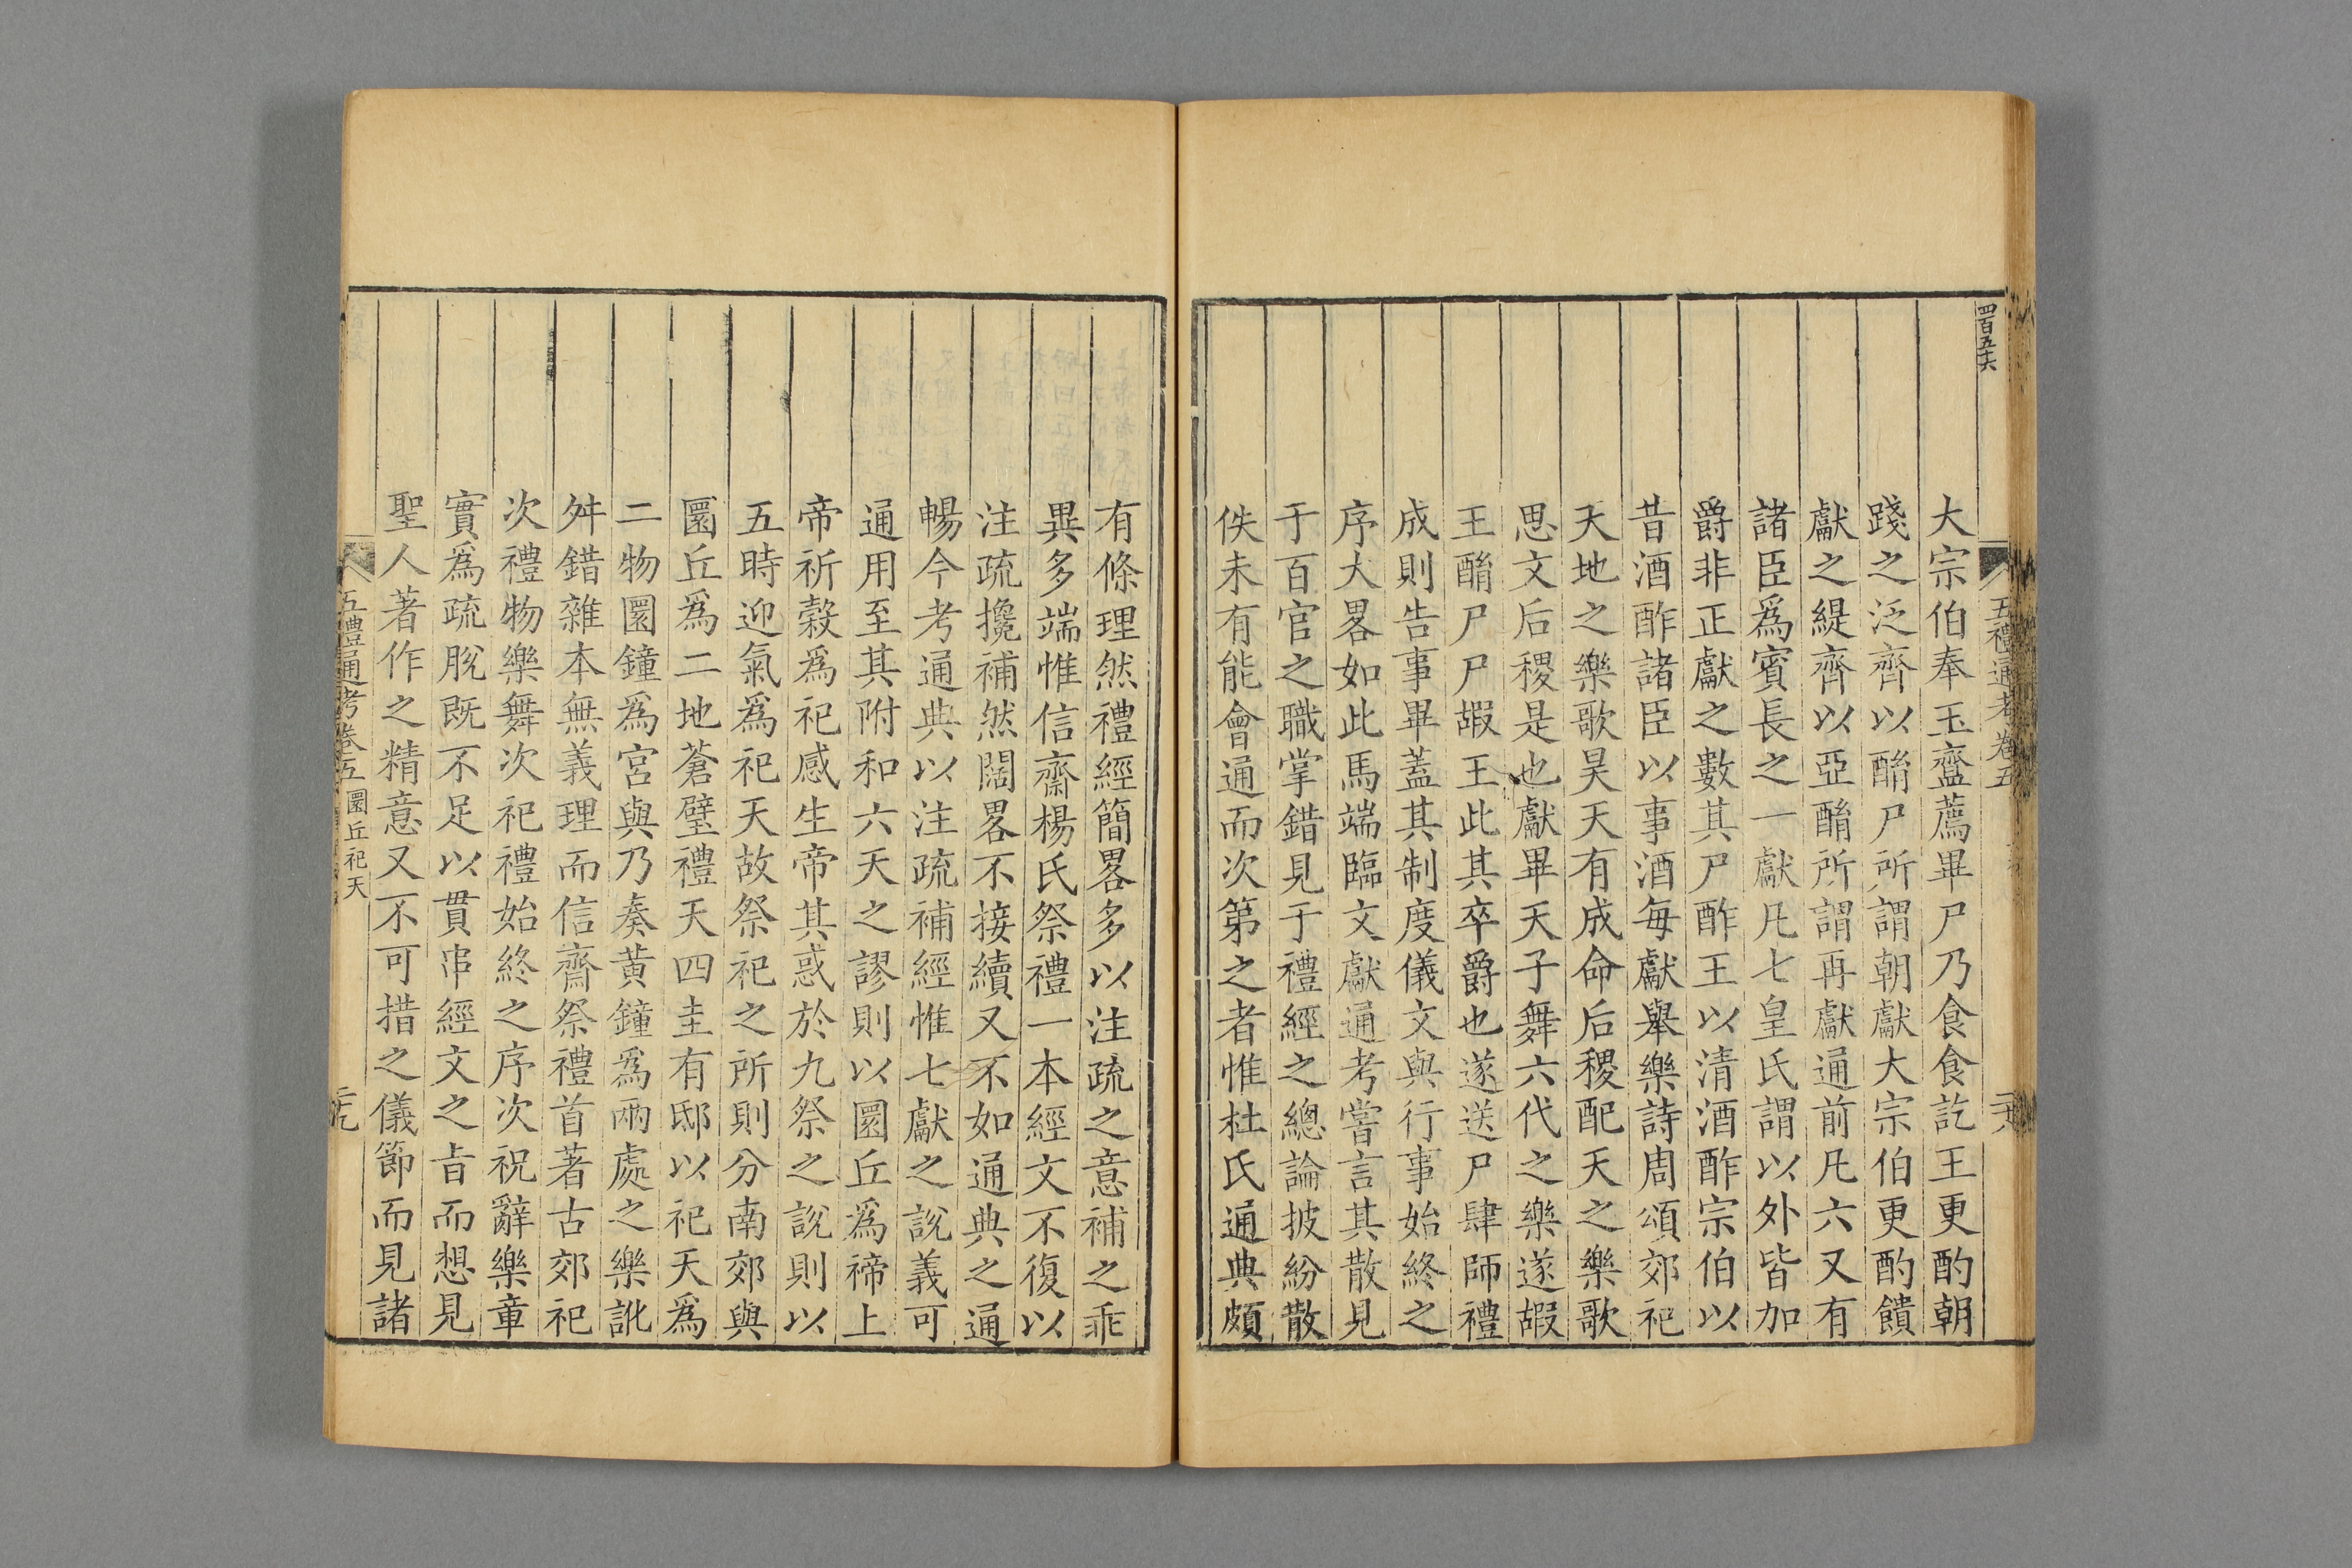 四百五十六
五禮通考卷五
大宗伯奉玉齍薦畢尸乃食食訖王更酌朝
踐之泛齊以酳尸所謂朝獻大宗伯更酌饋
獻之緹齊以亞酳所謂再獻通前凡六又有
諸臣爲賓長之一獻凡七皇氏謂以外皆加
爵非正獻之數其尸酢王以清酒酢宗伯以
昔酒酢諸臣以事酒每獻舉樂詩周頌郊祀
天地之樂歌昊天有成命后稷配天之樂歌
思文后稷是也獻畢天子舞六代之樂遂嘏
王酳尸尸嘏王此其卒爵也遂送尸肆師禮
成則告事畢蓋其制度儀文與行事始終之
序大畧如此馬端臨文獻通考嘗言其散見
于百官之職掌錯見于禮經之總論披紛散
佚未有能會通而次第之者惟杜氏通典頗
有條理然禮經簡畧多以注疏之意補之乖
異多端惟信齋楊氏祭禮一本經文不復以
注疏攙補然闊畧不接續又不如通典之通
暢今考通典以注疏補經惟七獻之說義可
通用至其附和六天之謬則以圜丘爲禘上
帝祈穀爲祀感生帝其惑於九祭之說則以
五時迎氣爲祀天故祭祀之所則分南郊與
圜丘爲二地蒼璧禮天四圭有邸以祀天爲
二物圜鐘爲宮與乃奏黃鐘爲兩處之樂訛
舛錯雜本無義理而信齋祭禮首著古郊祀
次禮物樂舞次祀禮始終之序次祝辭樂章
實爲疏脫既不足以貫串經文之旨而想見
聖人著作之精意又不可措之儀節而見諸
五禮通考卷五 圜丘祀天